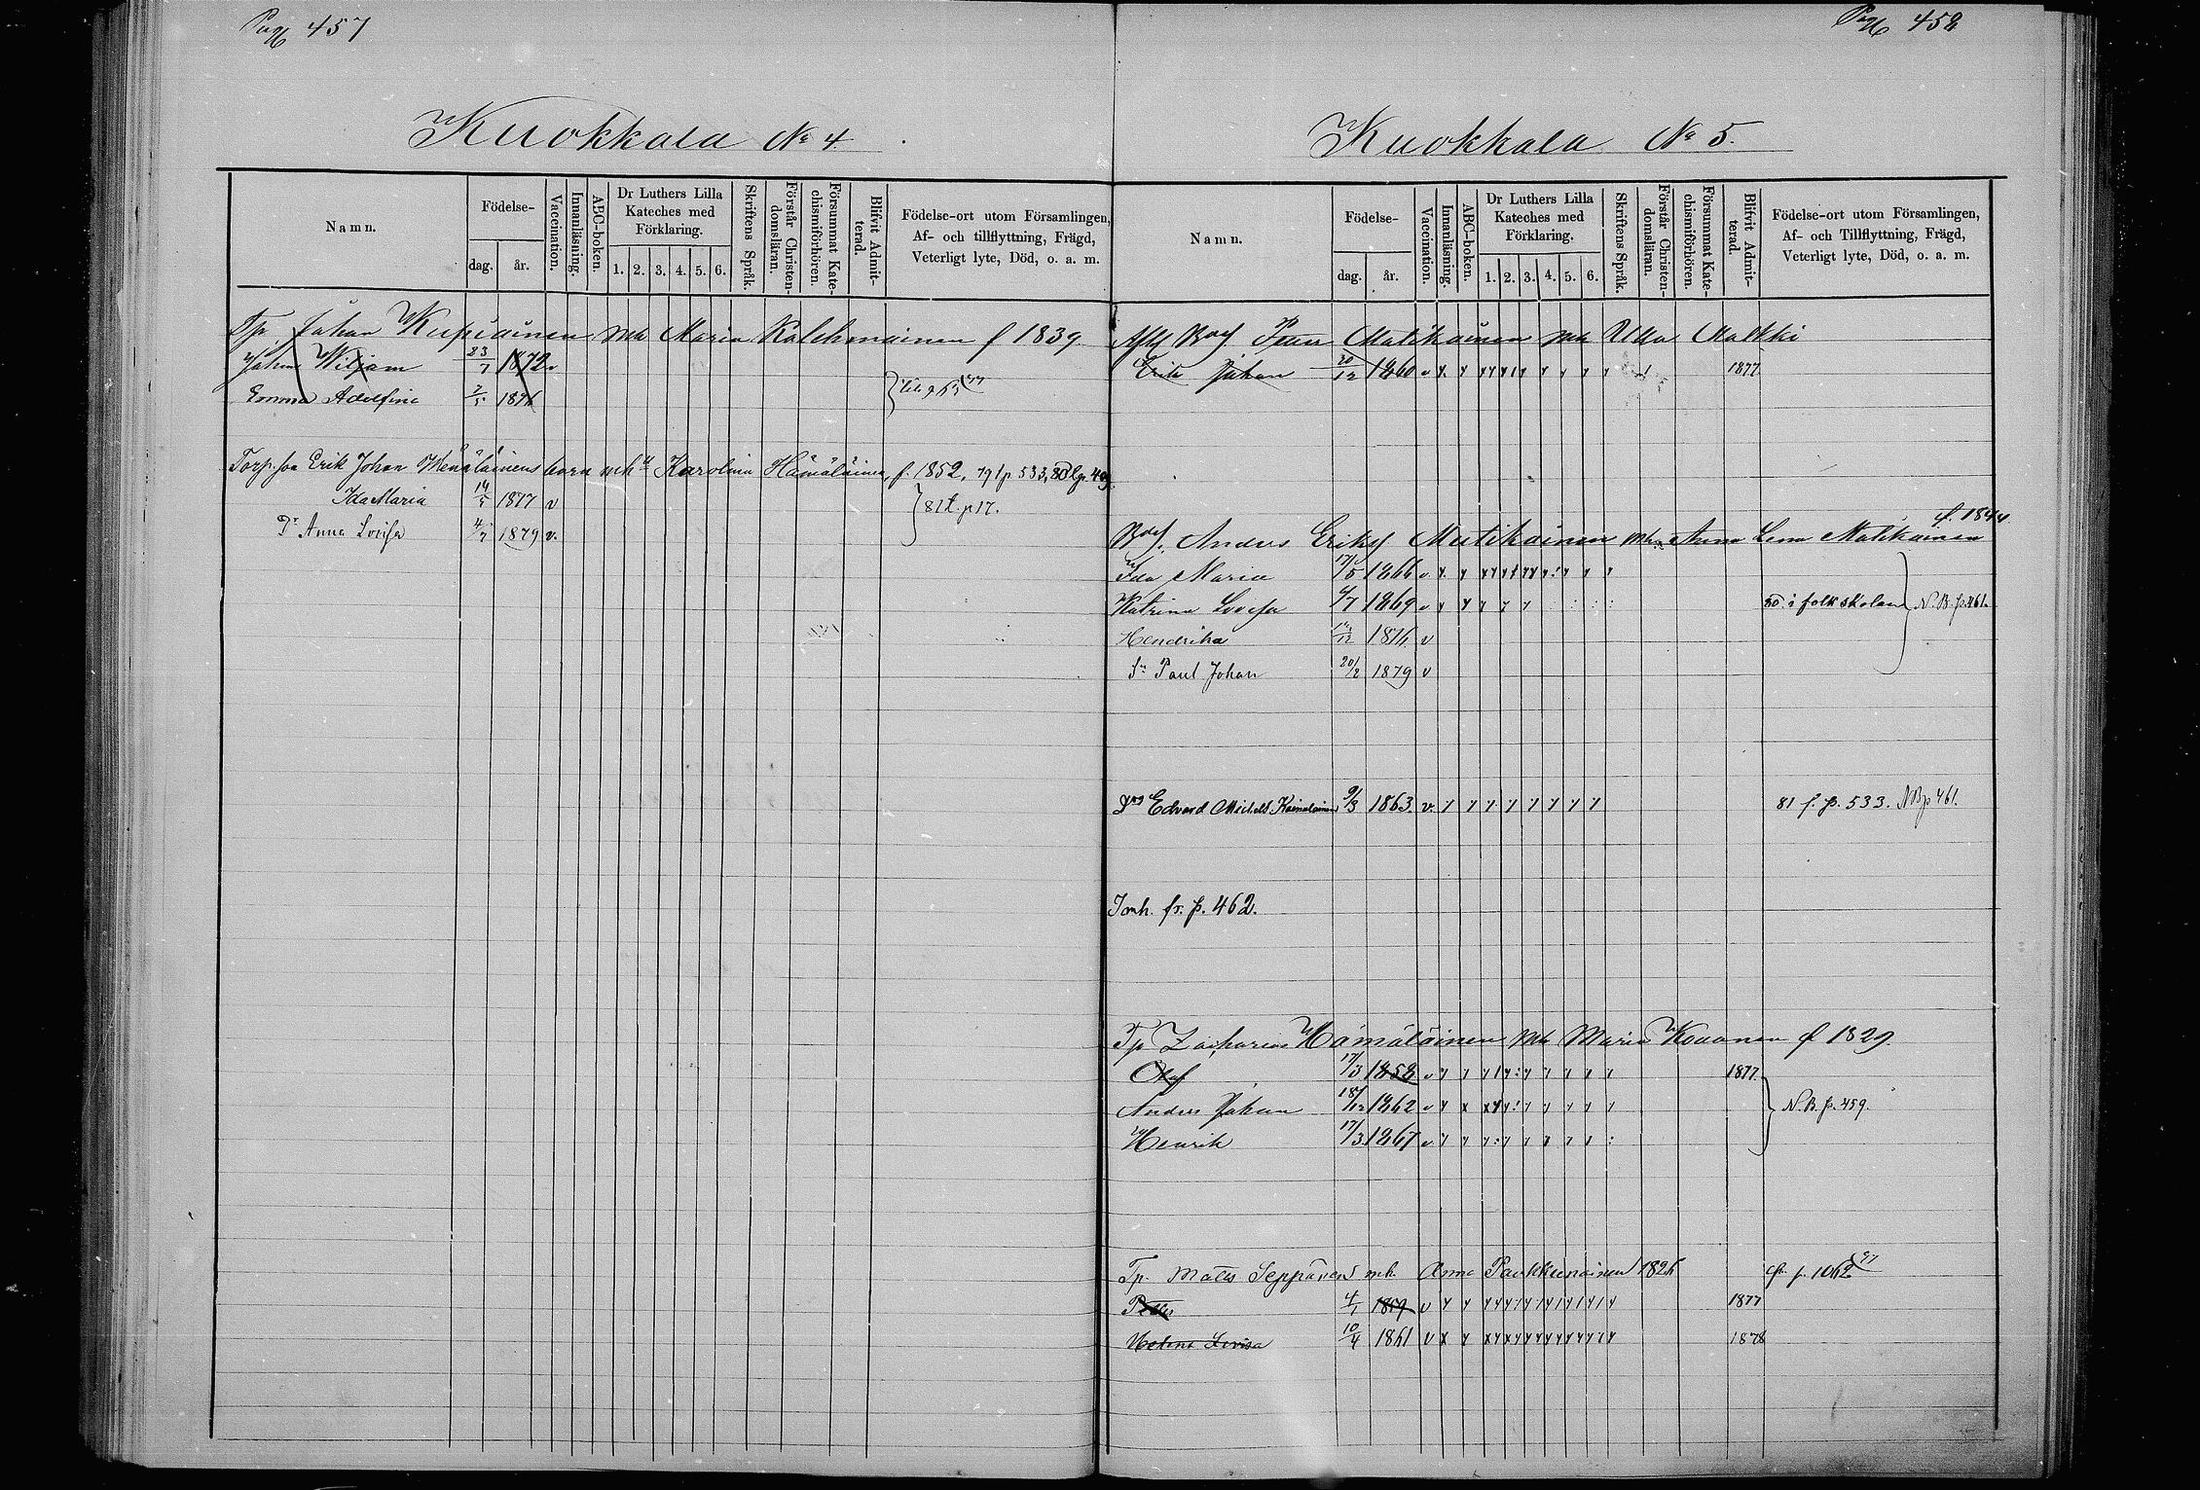 Pag 457
Kuokkala No 4.
Namn.
Födelse-
dag.
år.
Vaccination.
Innanläsning.
ABC-boken.
Dr Luthers Lilla
Kateches med
Förklaring.
1. 2. 3. 4. 5. 6.
Skriftens Språk.
Förstår Christen-
domsläran.
Försummat Kate-
chismiförhören.
Blifvit Admit-
terad.
Födelse-ort utom Församlingen,
Af- och tillflyttning, Frägd,
Veterligt lyte, Död, o. a. m.
Tp. Johan Kupiainen mh Maria f 1839.
Johan Wiljam 23/7 1872 v
Emma Adolfina 2/5 1876
Torp. son Erik Johan Menäläinens barn mh Karolina Hämäläinen, f. 1852, 79 f p. 533, 80 l p.
Ida Maria 14/5 1877 v
Dr Anna Lovisa 4/7 1879 v.
81 t. p 17.
Pag 458
Kuokkala No 5.
Namn.
Födelse-
dag.
år.
Vaccination.
Innanläsning.
ABC-boken.
Dr Luthers Lilla
Kateches med
Förklaring.
1. 2. 3. 4. 5. 6.
Skriftens Språk.
Förstår Christen-
domsläran.
Försummat Kate-
chismiförhören.
Blifvit Admit-
terad.
Födelse-ort utom Församlingen,
Af- och Tillflyttning, Frägd,
Veterligt lyte, Död, o. a. m.
Matikainen mh Ulla Malkki
Erik Johan 20/12 1860 v 1877
f. 1844
Anders Matikainen mh. Anna Lena Matikainen
Ida Maria 17/5 1866 v
Katrina Lovisa 4/7 1869 v 80. i folkskolan N.B. p. 461.
Hendrika 1876 v
Sn Paul Johan 20/2 1879 v
Edvard 9/3 1863. v. 81 f. p. 533. NB p 461.
Inh. fr. p. 462.
Tp Zacharias Hämäläinen mh Maria Kovanen f 1829.
Olof 17/3 1858 v 1877
Anders Johan 18/12 1862 v
N.B. p. 459.
Henrik 17/3 1867 v
Tp. Mats Seppänen mh. Anna Paukkunainen 1826 p. 1062
Petter 4/1 1859 v 1877
Helena Lovisa 10/4 1861 v 1878